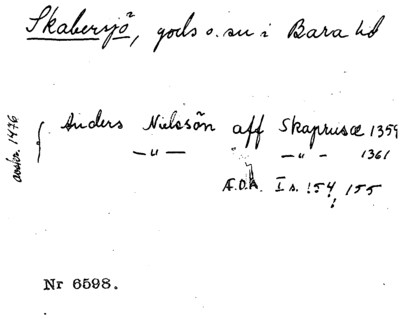 Skabersjö, gods o. sn i Bara hd
Anders Nielssön aff Skaprusæ 1359
— " — " — " — 1361
Æ.D.A. I s. 154, 155
1476
Nr 6598.